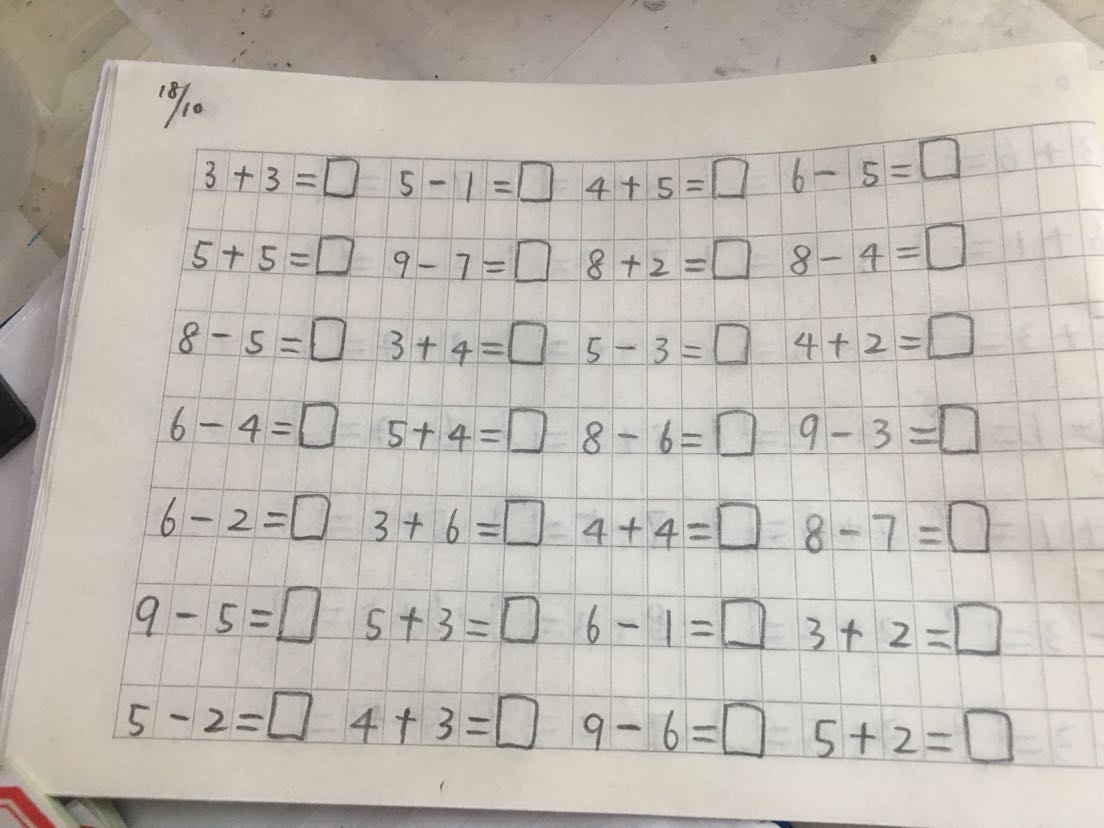 18/10
3+3=□ 5-1=□ 4+5=□ 6-5=□
5+5=□ 9-7=□ 8+2=□ 8-4=□
8-5=□ 3+4=□ 5-3=□ 4+2=□
6-4=□ 5+4=□ 8-6=□ 9-3=□
6-2=□ 3+6=□ 4+4=□ 8-7=□
9-5=□ 5+3=□ 6-1=□ 3+2=□
5-2=□ 4+3=□ 9-6=□ 5+2=□